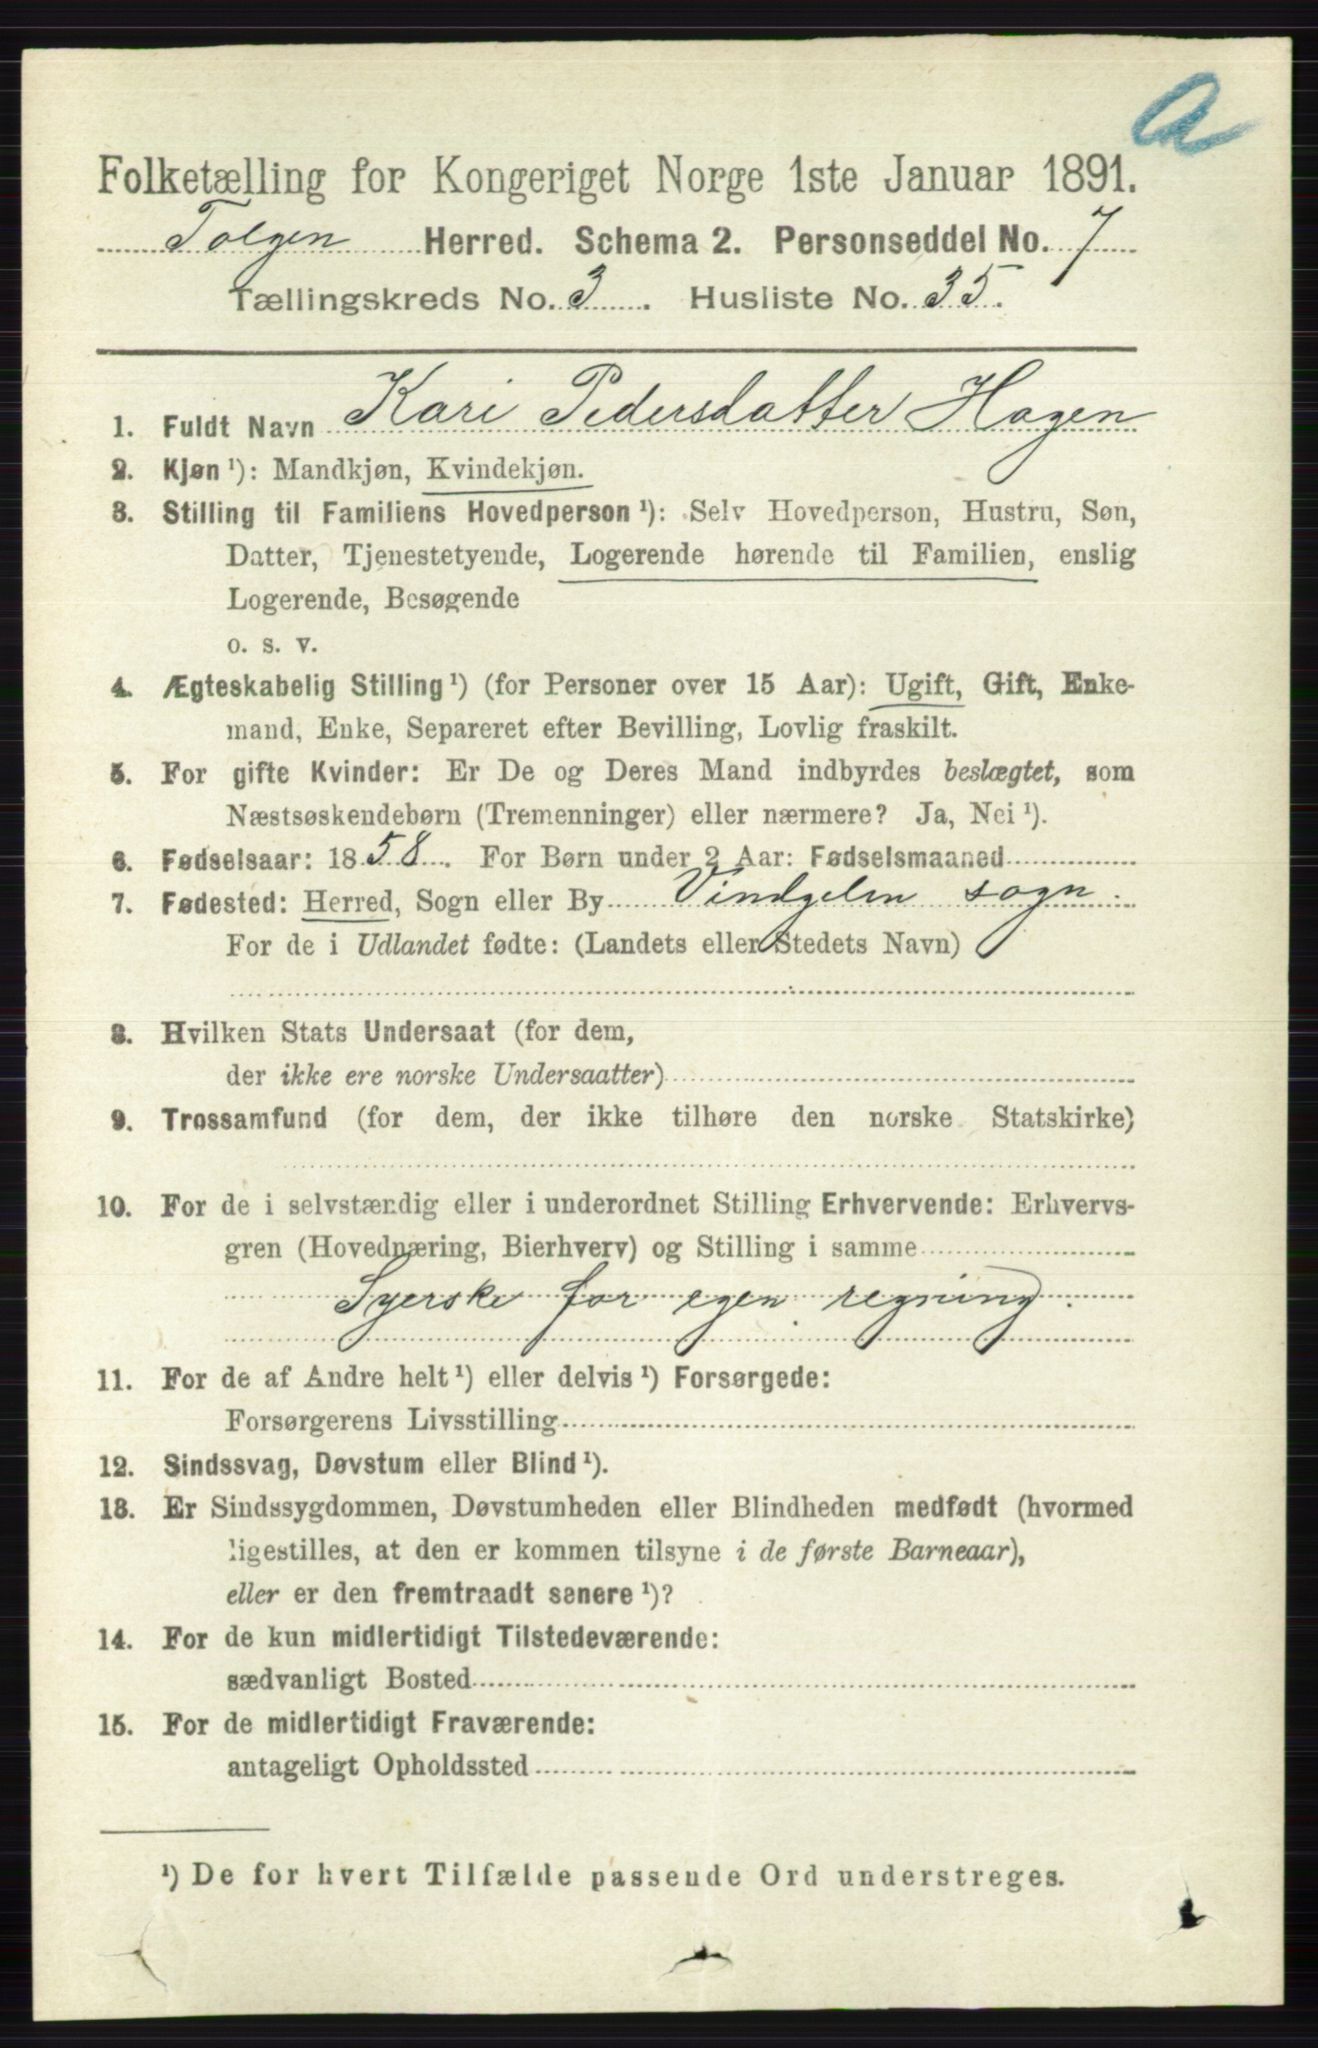 a
Folketælling for Kongeriget Norge 1ste Januar 1891.
Tolgen Herred. Schema 2. Personseddel No. 7
Tællingskreds No. 3. Husliste No. 35.
1. Fuldt Navn Kari Pedersdatter Hagen
2. Kjøn ¹): Mandkjøn, Kvindekjøn.
3. Stilling til Familiens Hovedperson ¹): Selv Hovedperson, Hustru, Søn,
Datter, Tjenestetyende, Logerende hørende til Familien, enslig
Logerende, Besøgende
o. s. v.
4. Ægteskabelig Stilling ¹) (for Personer over 15 Aar): Ugift, Gift, Enke-
mand, Enke, Separeret efter Bevilling, Lovlig fraskilt.
5. For gifte Kvinder: Er De og Deres Mand indbyrdes beslægtet, som
Næstsøskendebørn (Tremenninger) eller nærmere? Ja, Nei ¹).
6. Fødselsaar: 1858. For Børn under 2 Aar: Fødselsmaaned
7. Fødested: Herred, Sogn eller By Vindgelen sogn.
For de i Udlandet fødte: (Landets eller Stedets Navn)
8. Hvilken Stats Undersaat (for dem,
der ikke ere norske Undersaatter)
9. Trossamfund (for dem, der ikke tilhøre den norske Statskirke)
10. For de i selvstændig eller i underordnet Stilling Erhvervende: Erhvervs-
gren (Hovednæring, Bierhverv) og Stilling i samme
Syerske for egen regning.
11. For de af Andre helt ¹) eller delvis ¹) Forsørgede:
Forsørgerens Livsstilling
12. Sindssvag, Døvstum eller Blind ¹).
13. Er Sindssygdommen, Døvstumheden eller Blindheden medfødt (hvormed
ligestilles, at den er kommen tilsyne i de første Barneaar),
eller er den fremtraadt senere ¹)?
14. For de kun midlertidigt Tilstedeværende:
sædvanligt Bosted
15. For de midlertidigt Fraværende:
antageligt Opholdssted
¹) De for hvert Tilfælde passende Ord understreges.